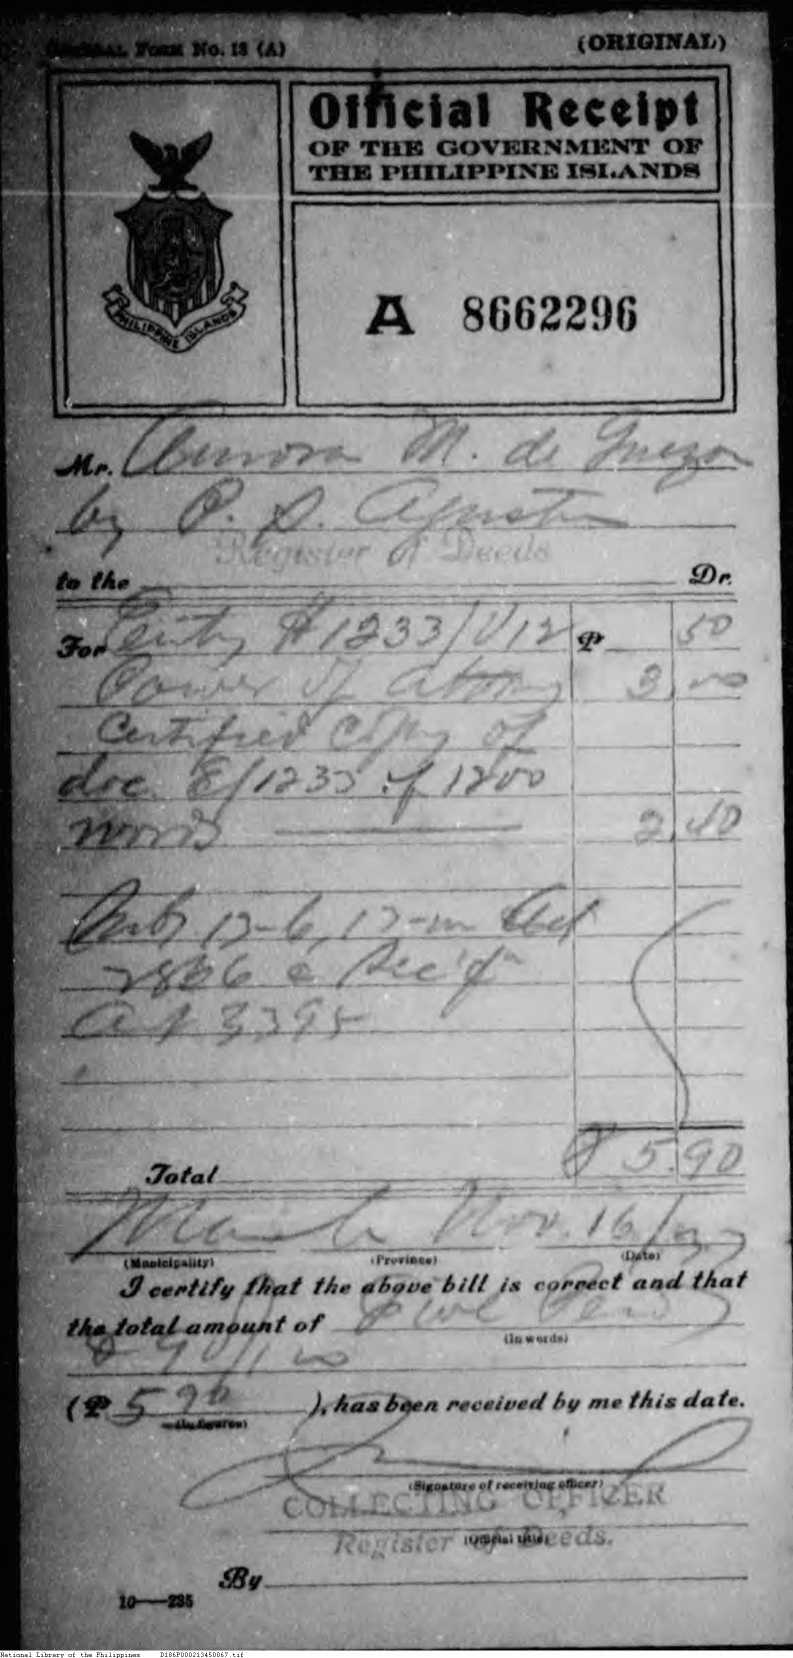 GENERAL FORM No. 13 (A)
(ORIGINAL)
Official Receipt
OF THE GOVERNMENT OF
THE PHILIPPINE ISLANDS
PHILIPPINE ISLANDS
A 8662296
Mr. Aurora M. de Quezon
by P. S. Agustin
Register of Deeds
to the Dr.
For Entry #1233/V12 ₱ 50
Power of Attorney 3.00
Certified copy of
doc. E/1233 of 1200
words 2.40
2866 & Sec
Act 3395
Total ₱ 5.90
Manila Nov. 16/
(Municipality) (Province) (Date)
I certify that the above bill is correct and that
the total amount of Five Pesos
(In words)
& 90/100
(₱ 5.90), has been received by me this date.
(In figures)
(Signature of receiving officer)
COLLECTING OFFICER
Register of Deeds.
(Official title)
By
10—235
National Library of the Philippines D186P000213450067.tif